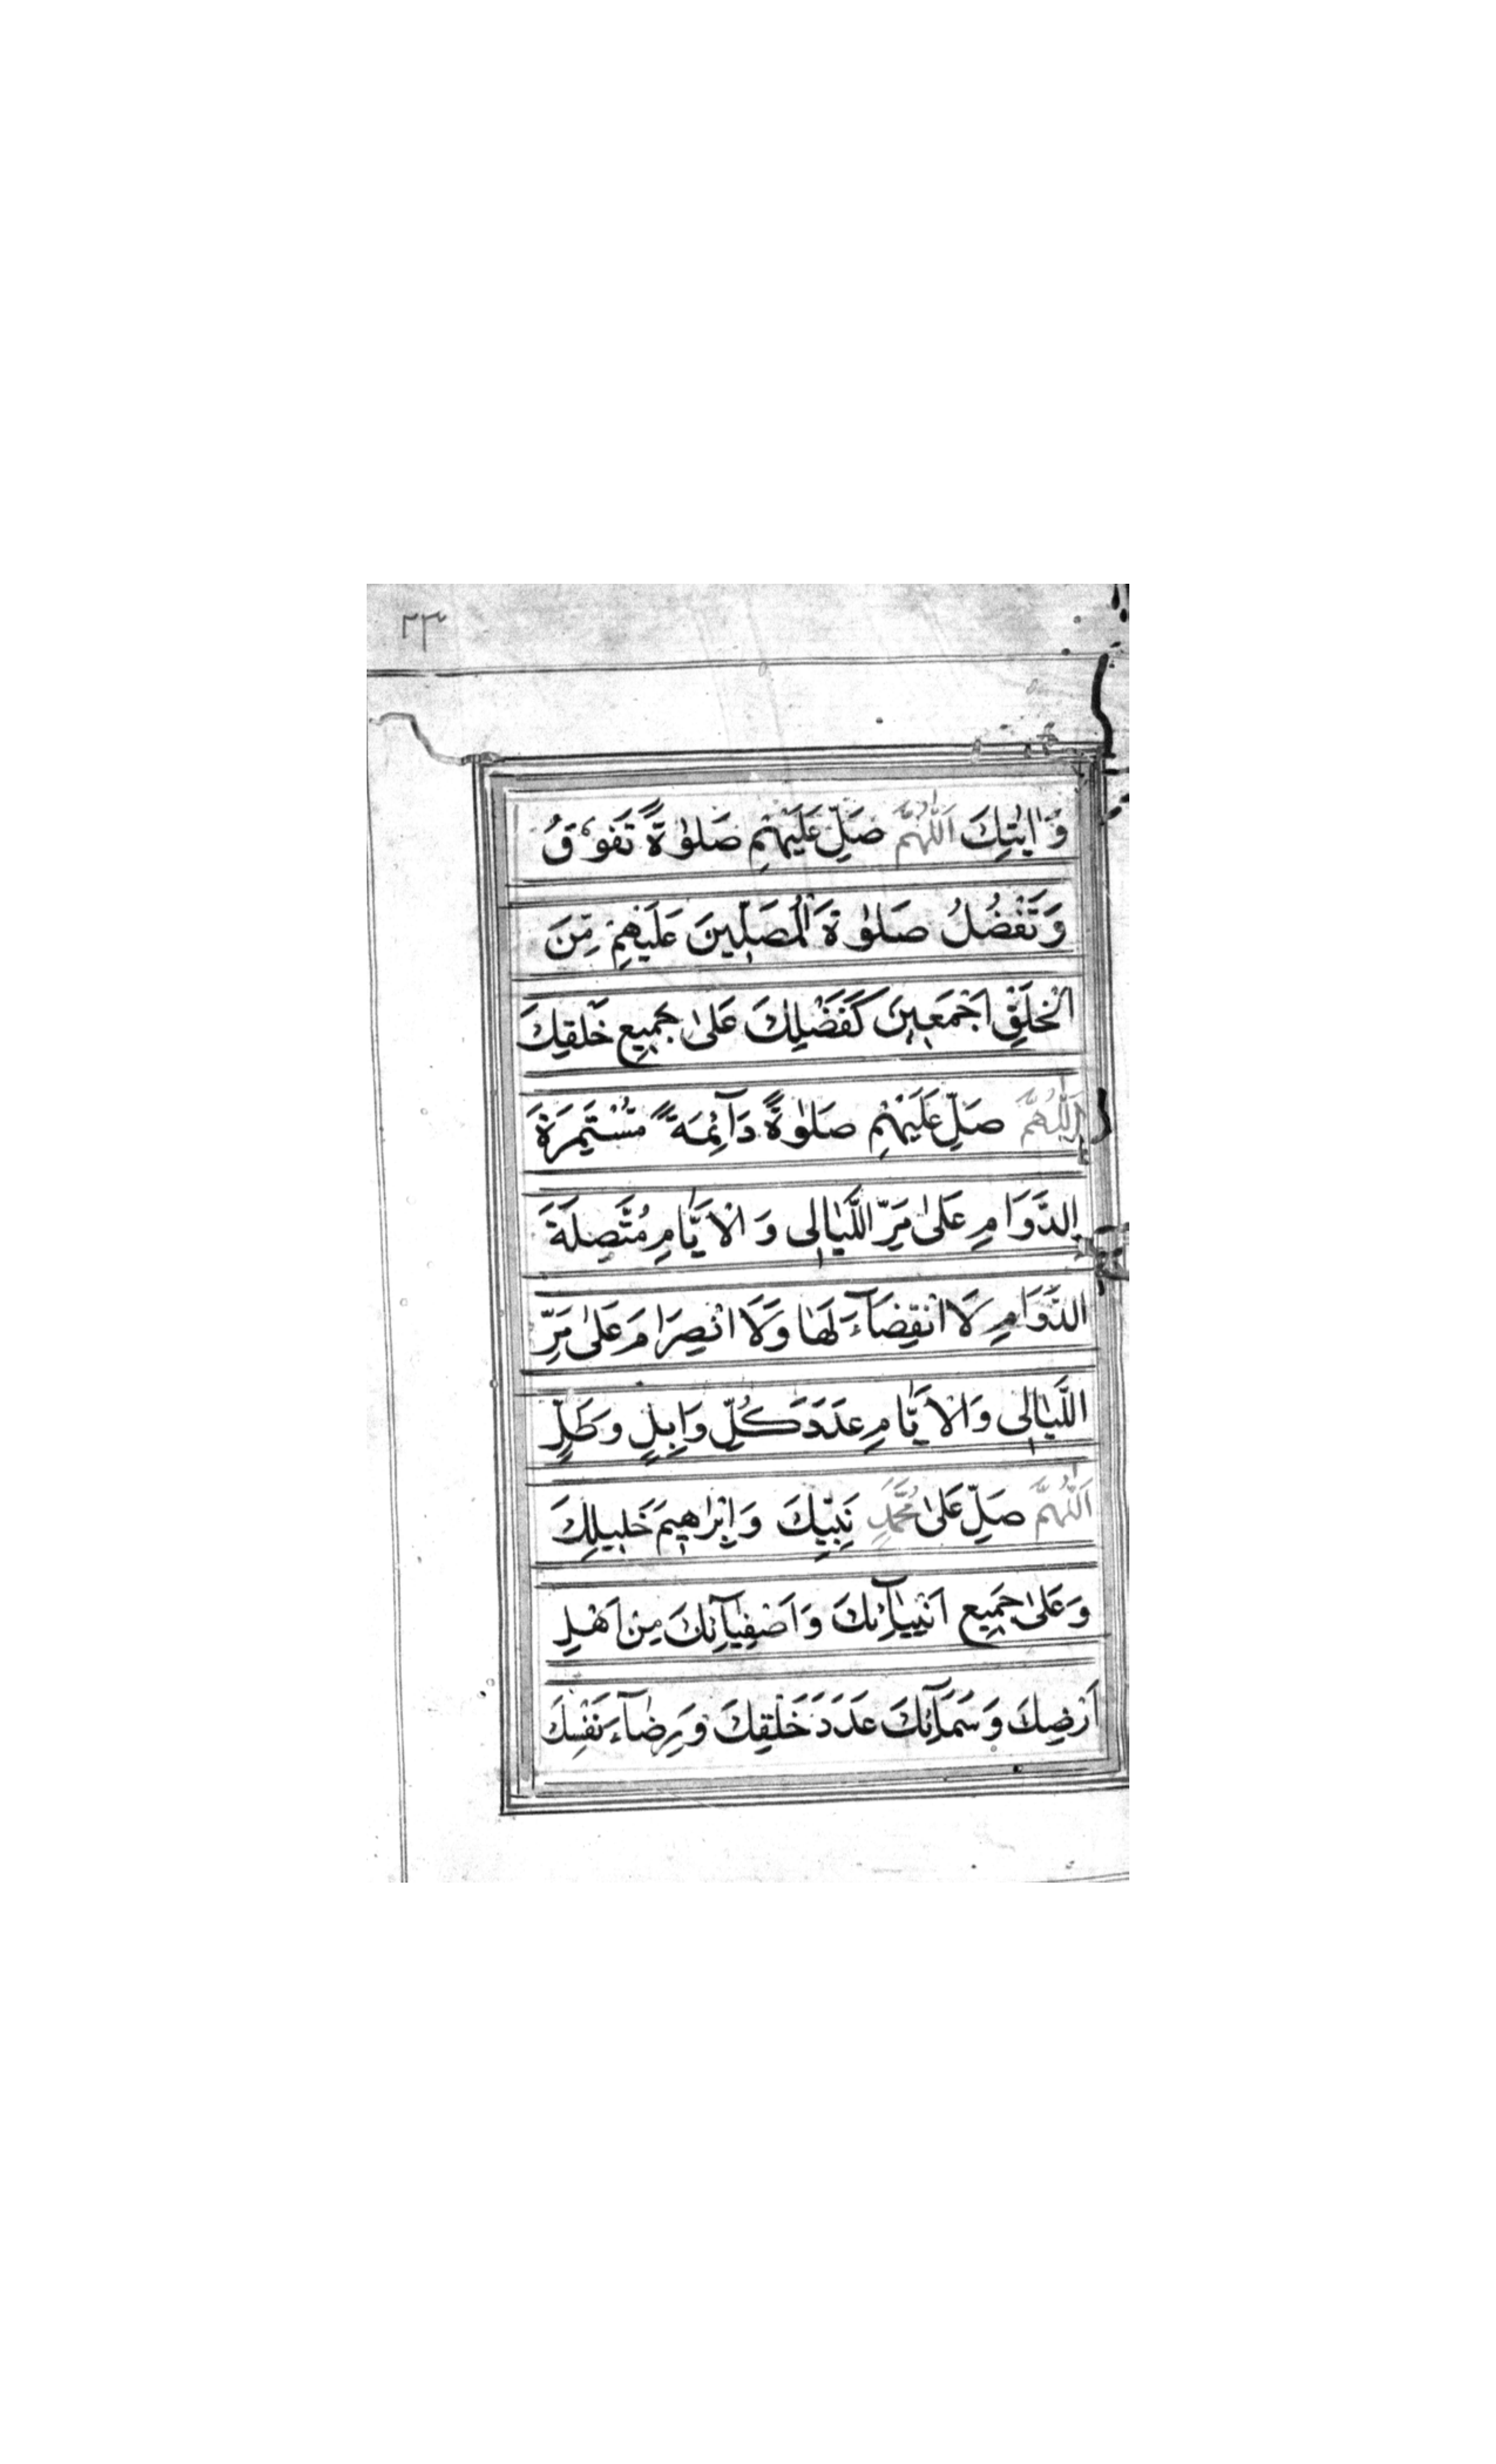 ٢٣
وَاٰيٰتِكَ اَللّٰهُمَّ صَلِّ عَلَيْهِمْ صَلٰوةً تَفُوْقُ
وَتَفْضُلُ صَلٰوةَ الْمُصَلِّيْنَ عَلَيْهِمْ مِّنَ
الْخَلْقِ اَجْمَعِيْنَ كَفَضْلِكَ عَلٰى جَمِيْعِ خَلْقِكَ
اَللّٰهُمَّ صَلِّ عَلَيْهِمْ صَلٰوةً دَآئِمَةً مُّسْتَمِرَّةَ
الدَّوَامِ عَلٰى مَرِّ اللَّيَالِى وَ الْاَيَّامِ مُتَّصِلَةَ
الدَّوَامِ لَا انْقِضَآءَ لَهَا وَلَا انْصِرَامَ عَلٰى مَرِّ
اللَّيَالِى وَالْاَيَّامِ عَدَدَ كُلِّ وَابِلٍ وَطَلٍّ
اَللّٰهُمَّ صَلِّ عَلٰى مُحَمَّدٍ نَبِيِّكَ وَاِبْرٰهِيْمَ خَلِيْلِكَ
وَعَلٰى جَمِيْعِ اَنْبِيَآئِكَ وَاَصْفِيَآئِكَ مِنْ اَهْلِ
اَرْضِكَ وَسَمَآئِكَ عَدَدَ خَلْقِكَ وَرِضَآءَ نَفْسِكَ